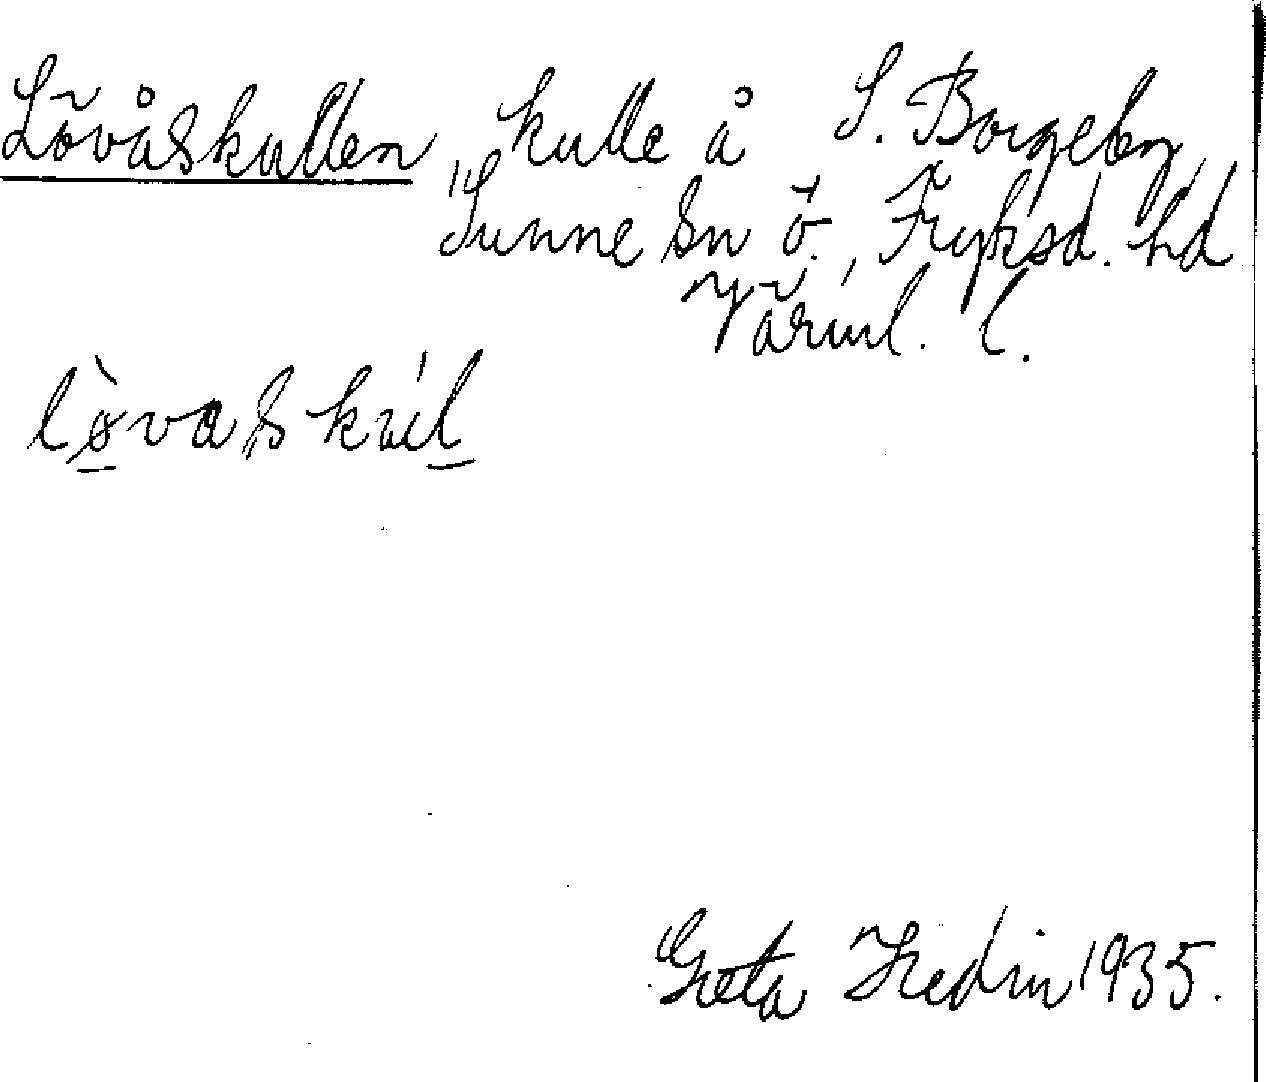 Lövåskullen, kulle å S. Borgeby,
Sunne sn ö., Fryksd. hd
Värml. l.
lø̀vaskúl
Greta Hedin 1935.